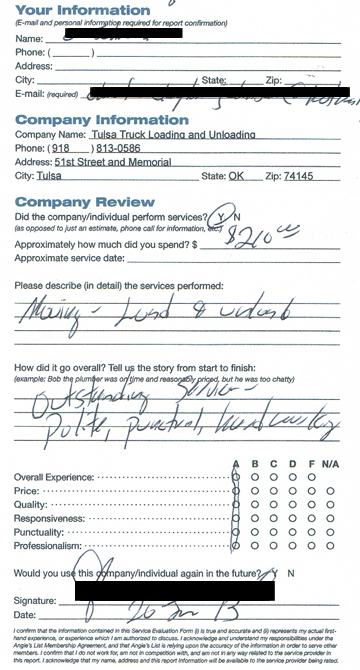 Your Information
(E-mail and personal information required for report confirmation)
Name:
Phone: ( )
Address:
City: State: Zip:
E-mail: (required)
Company Information
Company Name: Tulsa Truck Loading and Unloading
Phone: (918 ) 813-0586
Address: 51st Street and Memorial
City: Tulsa State: OK Zip: 74145
Company Review
Did the company/individual perform services? Y N
(as opposed to just an estimate, phone call for information, etc.)
Approximately how much did you spend? $ $210.00
Approximate service date:
Please describe (in detail) the services performed:
Moving - Load & unload
How did it go overall? Tell us the story from start to finish:
(example: Bob the plumber was on time and reasonably priced, but he was too chatty)
Outstanding Service -
Polite, punctual, hard working
A B C D F N/A
Overall Experience:
Price:
Quality:
Responsiveness:
Punctuality:
Professionalism:
Would you use this company/individual again in the future? Y N
Signature:
Date: 20 Jun 13
I confirm that the information contained in this Service Evaluation Form (i) is true and accurate and (ii) represents my actual first-
hand experience, or experience which I am authorized to discuss. I acknowledge and understand my responsibilities under the
Angie's List Membership Agreement, and that Angie's List is relying upon the accuracy of the information in order to serve other
members. I confirm that I do not work for, am not in competition with, and am not in any way related to the service provider in
this report. I acknowledge that my name, address and this report information will be available to the service provider being rated.